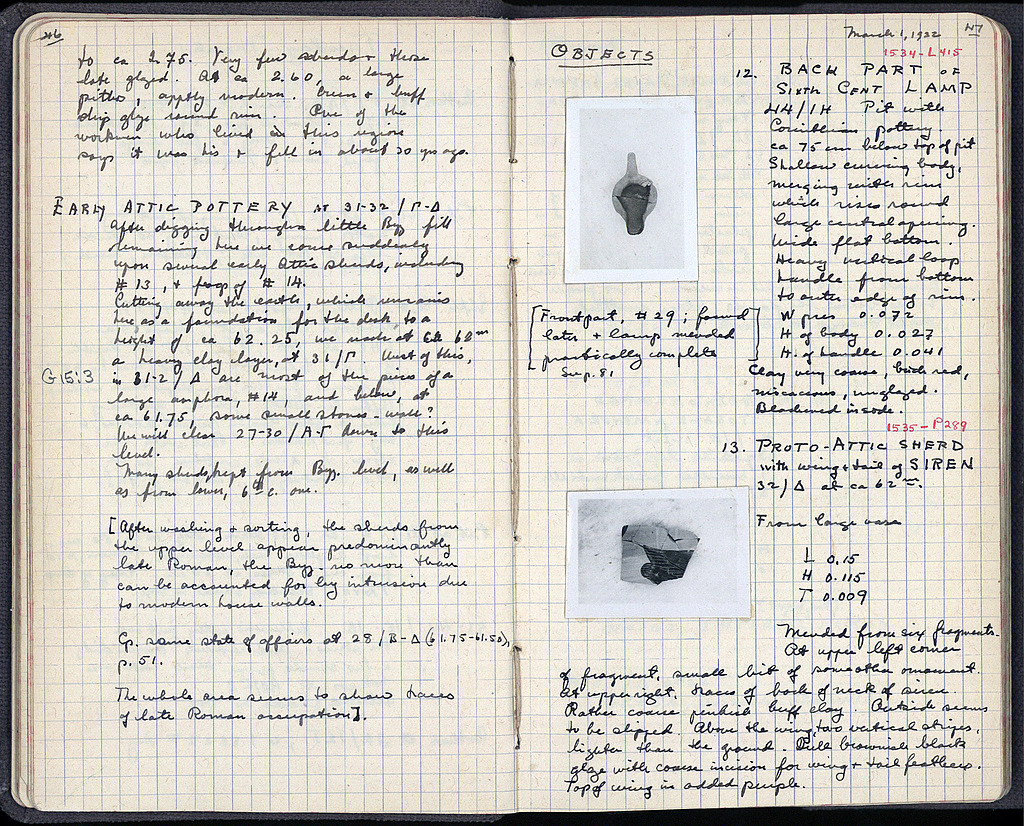 46
to ca 2.75. Very few sherds & these
late glazed. At ca 2.60, a large
pithos, apptly modern. Green & buff
drip glaze round rim. One of the
workmen who lived in this region
says it was his & fell in about 30 yrs ago.
EARLY ATTIC POTTERY AT 31-32/Γ-Δ
After digging through a little Byz fill
remaining here we came suddenly
upon several early Attic sherds, including
#13, & frags of #14.
Cutting away the earth, which remains
here as a foundation for the desk, to a
height of ca 62.25, we reach at ca 62m
a heavy clay layer, at 31/Γ. West of this,
G15:3
in 31-2/Δ are most of the pieces of a
large amphora, #14, and below, at
ca 61.75, some small stones - wall?
We will clear 27-30/A-Γ down to this
level.
Many sherds kept from Byz. level, as well
as from lower, 6th c. one.
[After washing & sorting, the sherds from
the upper level appear predominantly
late Roman, the Byz. no more than
can be accounted for by intrusion due
to modern house walls.
Cp. same state of affairs at 28/B-Δ (61.75-61.50),
p. 51.
The whole area seems to show traces
of late Roman occupation].
47
March 1, 1932
OBJECTS
1534-L415
12. BACK PART OF
SIXTH CENT LAMP
44/ΙΗ Pit with
Corinthian pottery.
ca 75 cm below top of pit
Shallow curving body,
merging with rim
which rises round
large central opening.
Wide flat bottom.
Heavy vertical loop
handle from bottom
to outer edge of rim.
W pres 0.072
H of body 0.027
H. of handle 0.041
Clay very coarse, brick red,
micaceous, unglazed.
Blackened inside.
[Front part, #29; found
later & lamp mended
practically complete]
See p. 81
1535-P289
13. PROTO-ATTIC SHERD
with wing & tail of SIREN
32/Δ at ca 62m.
From large vase
L 0.15
H 0.115
T 0.009
Mended from six fragments.
At upper left corner
of fragment, small bit of some other ornament.
At upper right, traces of back of neck of siren.
Rather coarse pinkish buff clay. Outside seems
to be slipped. Above the wing, two vertical stripes,
lighter than the ground. Dull brownish black
glaze with coarse incision for wing & tail feathers.
Top of wing in added purple.